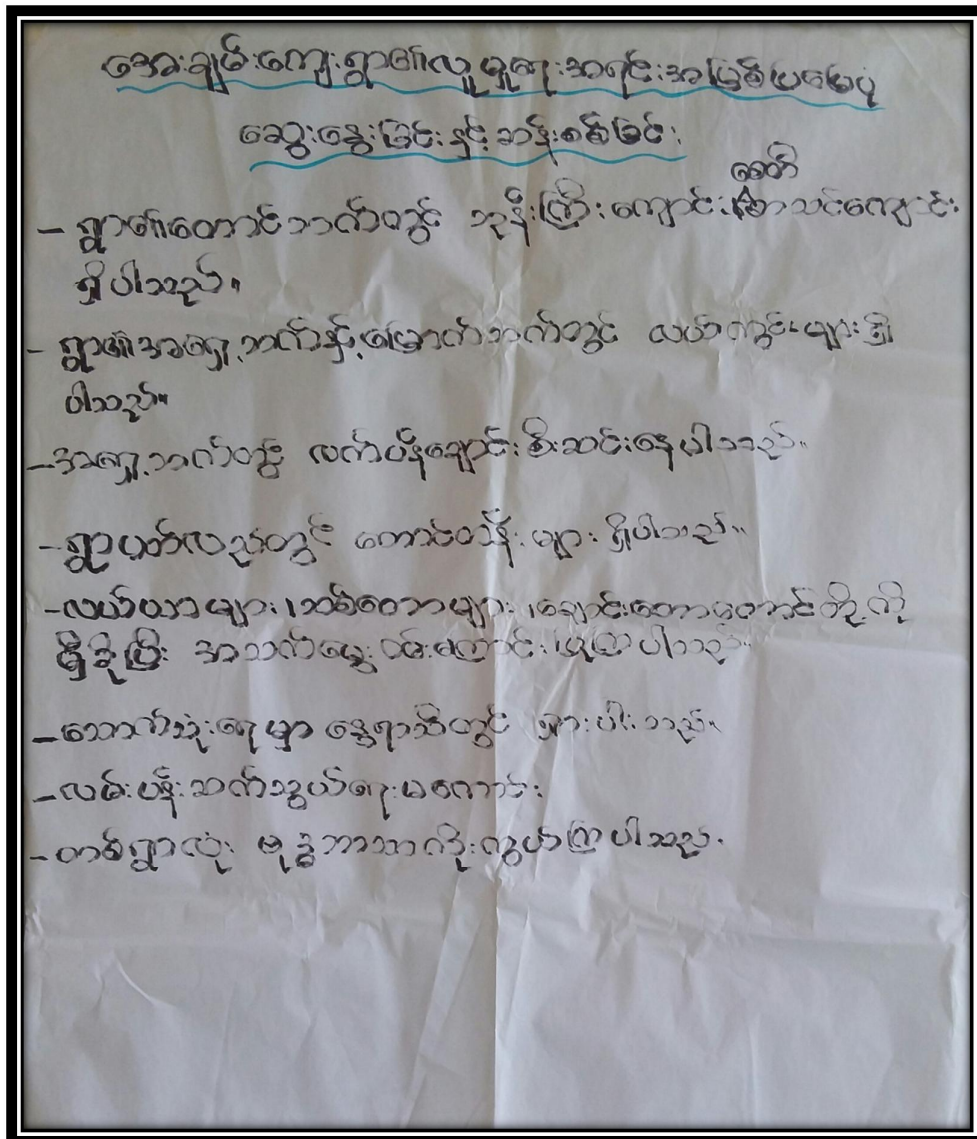 အေးချမ်းကျေးရွာ၏လူမှုရေးအရင်းအမြစ်ပြမြေပုံ
ဆွေးနွေးခြင်းနှင့်ဆန်းစစ်ခြင်း
စေတီ
- ရွာ၏တောင်ဘက်တွင် ဘုန်းကြီးကျောင်း၊ စာသင်ကျောင်း
ရှိပါသည်။
- ရွာ၏အရှေ့ဘက်နှင့်မြောက်ဘက်တွင် လယ်ကွင်းများရှိ
ပါသည်။
- အရှေ့ဘက်တွင် လက်ပံချောင်းစီးဆင်းနေပါသည်။
- ရွာပတ်လည်တွင် တောင်တန်းများ ရှိပါသည်။
- လယ်ယာများ၊ သစ်တောများ၊ ချောင်းတောတောင်တို့ကို
မှီခိုပြီး အသက်မွေးဝမ်းကြောင်းပြုကြပါသည်။
- သောက်သုံးရေမှာ နွေရာသီတွင် ရှားပါးသည်။
- လမ်းပန်းဆက်သွယ်ရေးမကောင်း
- တစ်ရွာလုံး ဗုဒ္ဓဘာသာကိုးကွယ်ကြပါသည်.